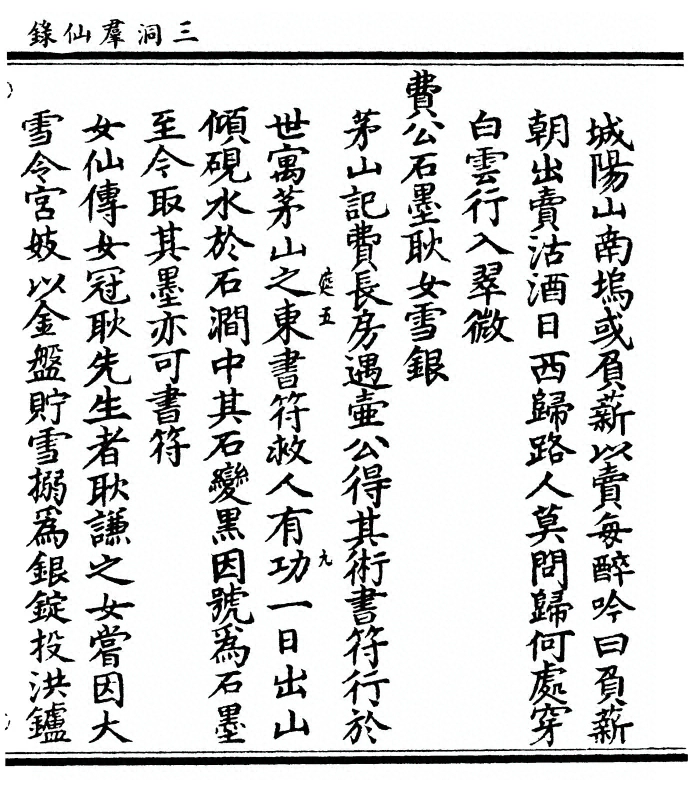 三洞羣仙錄
城陽山南塢或負薪以賣每醉吟曰負薪
朝出賣沽酒日西歸路人莫問歸何處穿
白雲行入翠微
費公石墨耿女雪銀
茅山記費長房遇壷公得其術書符行於
世寓茅山之東書符救人有功一日出山
傾硯水於石澗中其石變黒因號爲石墨
至今取其墨亦可書符
女仙傳女冠耿先生者耿謙之女嘗因大
雪令宮妓以金盤貯雪搦爲銀錠投洪鑪